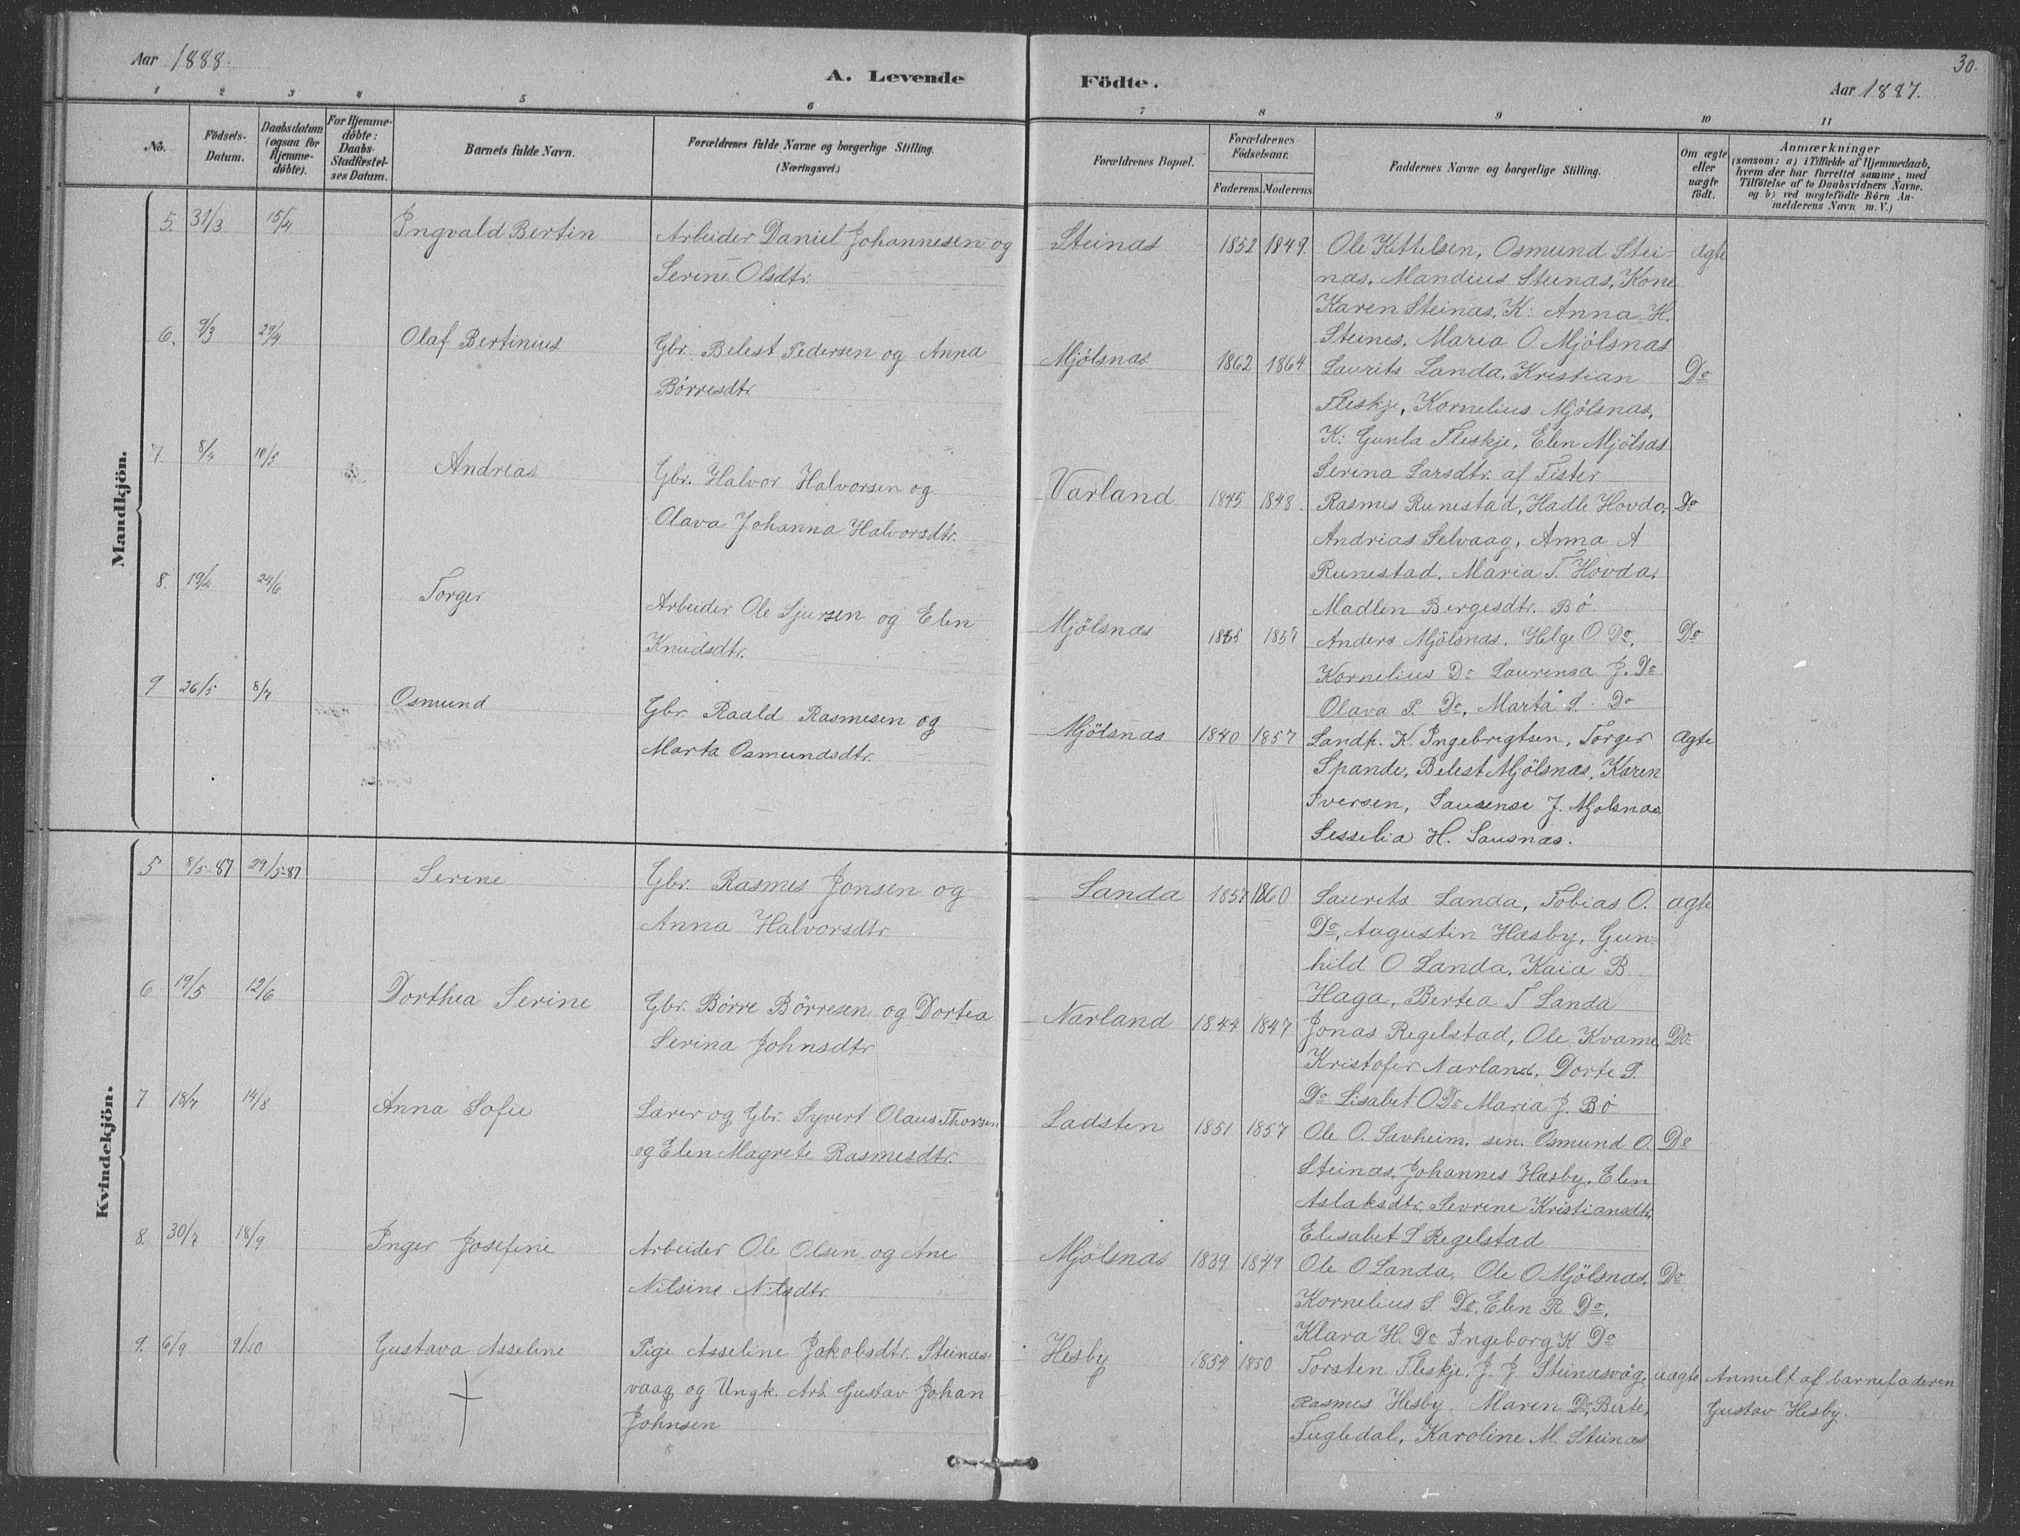 30.
Aar 1888.
A. Levende Födte.
Aar 1887.
1 2 3 4 5 6 7 8 9 10 11
No.
Födsels-Datum.
Daabsdatum (ogsaa for Hjemme-döbte).
For Hjemme-döbte: Daabs-Stadfæstel-ses Datum.
Barnets fulde Navn.
Forældrenes fulde Navne og borgerlige Stilling.
(Næringsvei.)
Forældrenes Bopæl.
Forældrenes Födselsaar.
Faderens. Moderens.
Faddernes Navne og borgerlige Stilling.
Om ægte eller uægte födt.
Anmærkninger
(saasom: a) i Tilfælde af Hjemmedaab,
hvem der har forrettet samme, med
Tilföielse af to Daabsvidners Navne.
og b) ved uægtefödte Börn An-
melderens Navn m. V.)
Mandkjön.
5. 31/3 15/4 Ingvald Bertin
Arbeider Daniel Johannesen og
Serine Olsdtr.
Steinas 1852 1849.
Ole Kittelsen, Osmund Stei-
nas, Mandius Steinas, Kone
Karen Steinas, K: Anna H.
Steines, Maria O. Mjölsnas
ægte
6. 9/3 29/4 Olaf Bertinius
Gbr. Belest Pedersen og Anna
Börresdtr.
Mjölsnas 1862 1864
Laurits Landa, Kristian
Fleskje, Kornelius Mjölsnas,
K: Gunla Fleskje, Elen Mjölsas
Serina Larsdtr. af Fister
Do
7. 8/4 10/5 Andrias
Gbr. Halvor Halvorsen og
Olava Johanna Halvorsdtr.
Varland 1845 1848.
Rasmes Runestad, Hadle Hovda,
Andrias Selvaag, Anna A
Runestad, Maria T. Hovda,
Madlen Bergesdtr. Bö.
Do
8. 19/4 24/6 Torger
Arbeider Ole Sjursen og Elen
Knudsdtr.
Mjölsnas 1857
Anders Mjölsnas, Helge O Do,
Kornelius Do Laurensa J. Do
Olava P. Do, Marta S. Do
Do
9 26/5 8/7 Osmund
Gbr. Raald Rasmesen og
Marta Osmundsdtr.
Mjölsnas 1840 1857
Landh. K. Ingebregtsen, Torger
Spande, Belest Mjölsnas, Karen
Iversen, Lausense J. Mjolsnas
Sessilia H. Sausnas.
ægte
Kvindekjön.
5 8/5-87 29/5-87 Serine
Gbr. Rasmes Jonsen og
Anna Halvorsdtr
Landa 1857 1860
Laurits Landa, Tobias O.
Do, Augustin Hæsby, Gun-
hild O Landa, Kaia B
Haga, Bertea T Landa
ægte
6 19/5 12/6 Dorthea Serine
Gbr. Börre Börresen og Dortea
Serina Johnsdtr
Nærland 1844 1847
Jonas Regelstad, Ole Kvame,
Kristofer Nærland, Dorte P.
Do Lisabet O Do Maria J. Bö
Do
7 18/7 14/8 Anna Sofie
Lærer og Gbr. Syvert Olaus Thorsen
og Elen Magrete Rasmesdtr.
Ladsten 1851 1857
Ole O. Savheim, sen. Osmund O.
Steinas, Johannes Hæsby, Elen
Aslaksdtr, Sevrine Kristiansdtr,
Elisabet S Regelstad
Do
8. 30/7 18/9 Inger Josefine
Arbeider Ole Olsen og Ane
Nilsine Nilsdtr.
Mjölsnas 1839 1849
Ole O Landa, Ole O Mjölsnas,
Kornelius S. Do, Elen R. Do,
Klara H. Do Ingeborg K Do
Do
9. 6/9 9/10 Gustava Asseline
Pige Asseline Jakobsdtr. Steinas-
vaag og Ungk. Arb. Gustav Johan
Johnsen
Hesby 1854 1850
Torsten Fleskje, J. J Steinasvåg,
Rasmes Hesby. Maren Do, Berte,
Fugledal, Karoline M. Steinas
uægte
Anmelt af barnefaderen
Gustav Hesby.